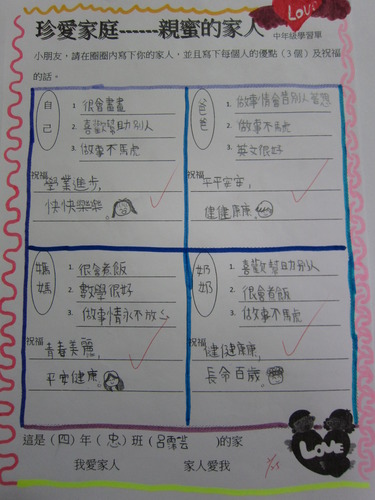 LOVE
珍愛家庭------親蜜的家人
中年級學習單
小朋友，請在圈圈內寫下你的家人，並且寫下每個人的優點（3個）及祝福
的話。
自己
1. 很會畫畫
2. 喜歡幫助別人
3. 做事不馬虎
祝福
學業進步，
快快樂樂。
爸爸
1. 做事情會替別人著想
2. 做事不馬虎
3. 英文很好
祝福
平平安安，
健健康康。
媽媽
1. 很會煮飯
2. 數學很好
3. 做事情永不放心
祝福
青春美麗，
平安健康。
奶奶
1. 喜歡幫助別人
2. 很會煮飯
3. 做事不馬虎
祝福
健健康康，
長命百歲。
LOVE
這是（四）年（忠）班（呂）的家
我愛家人 家人愛我